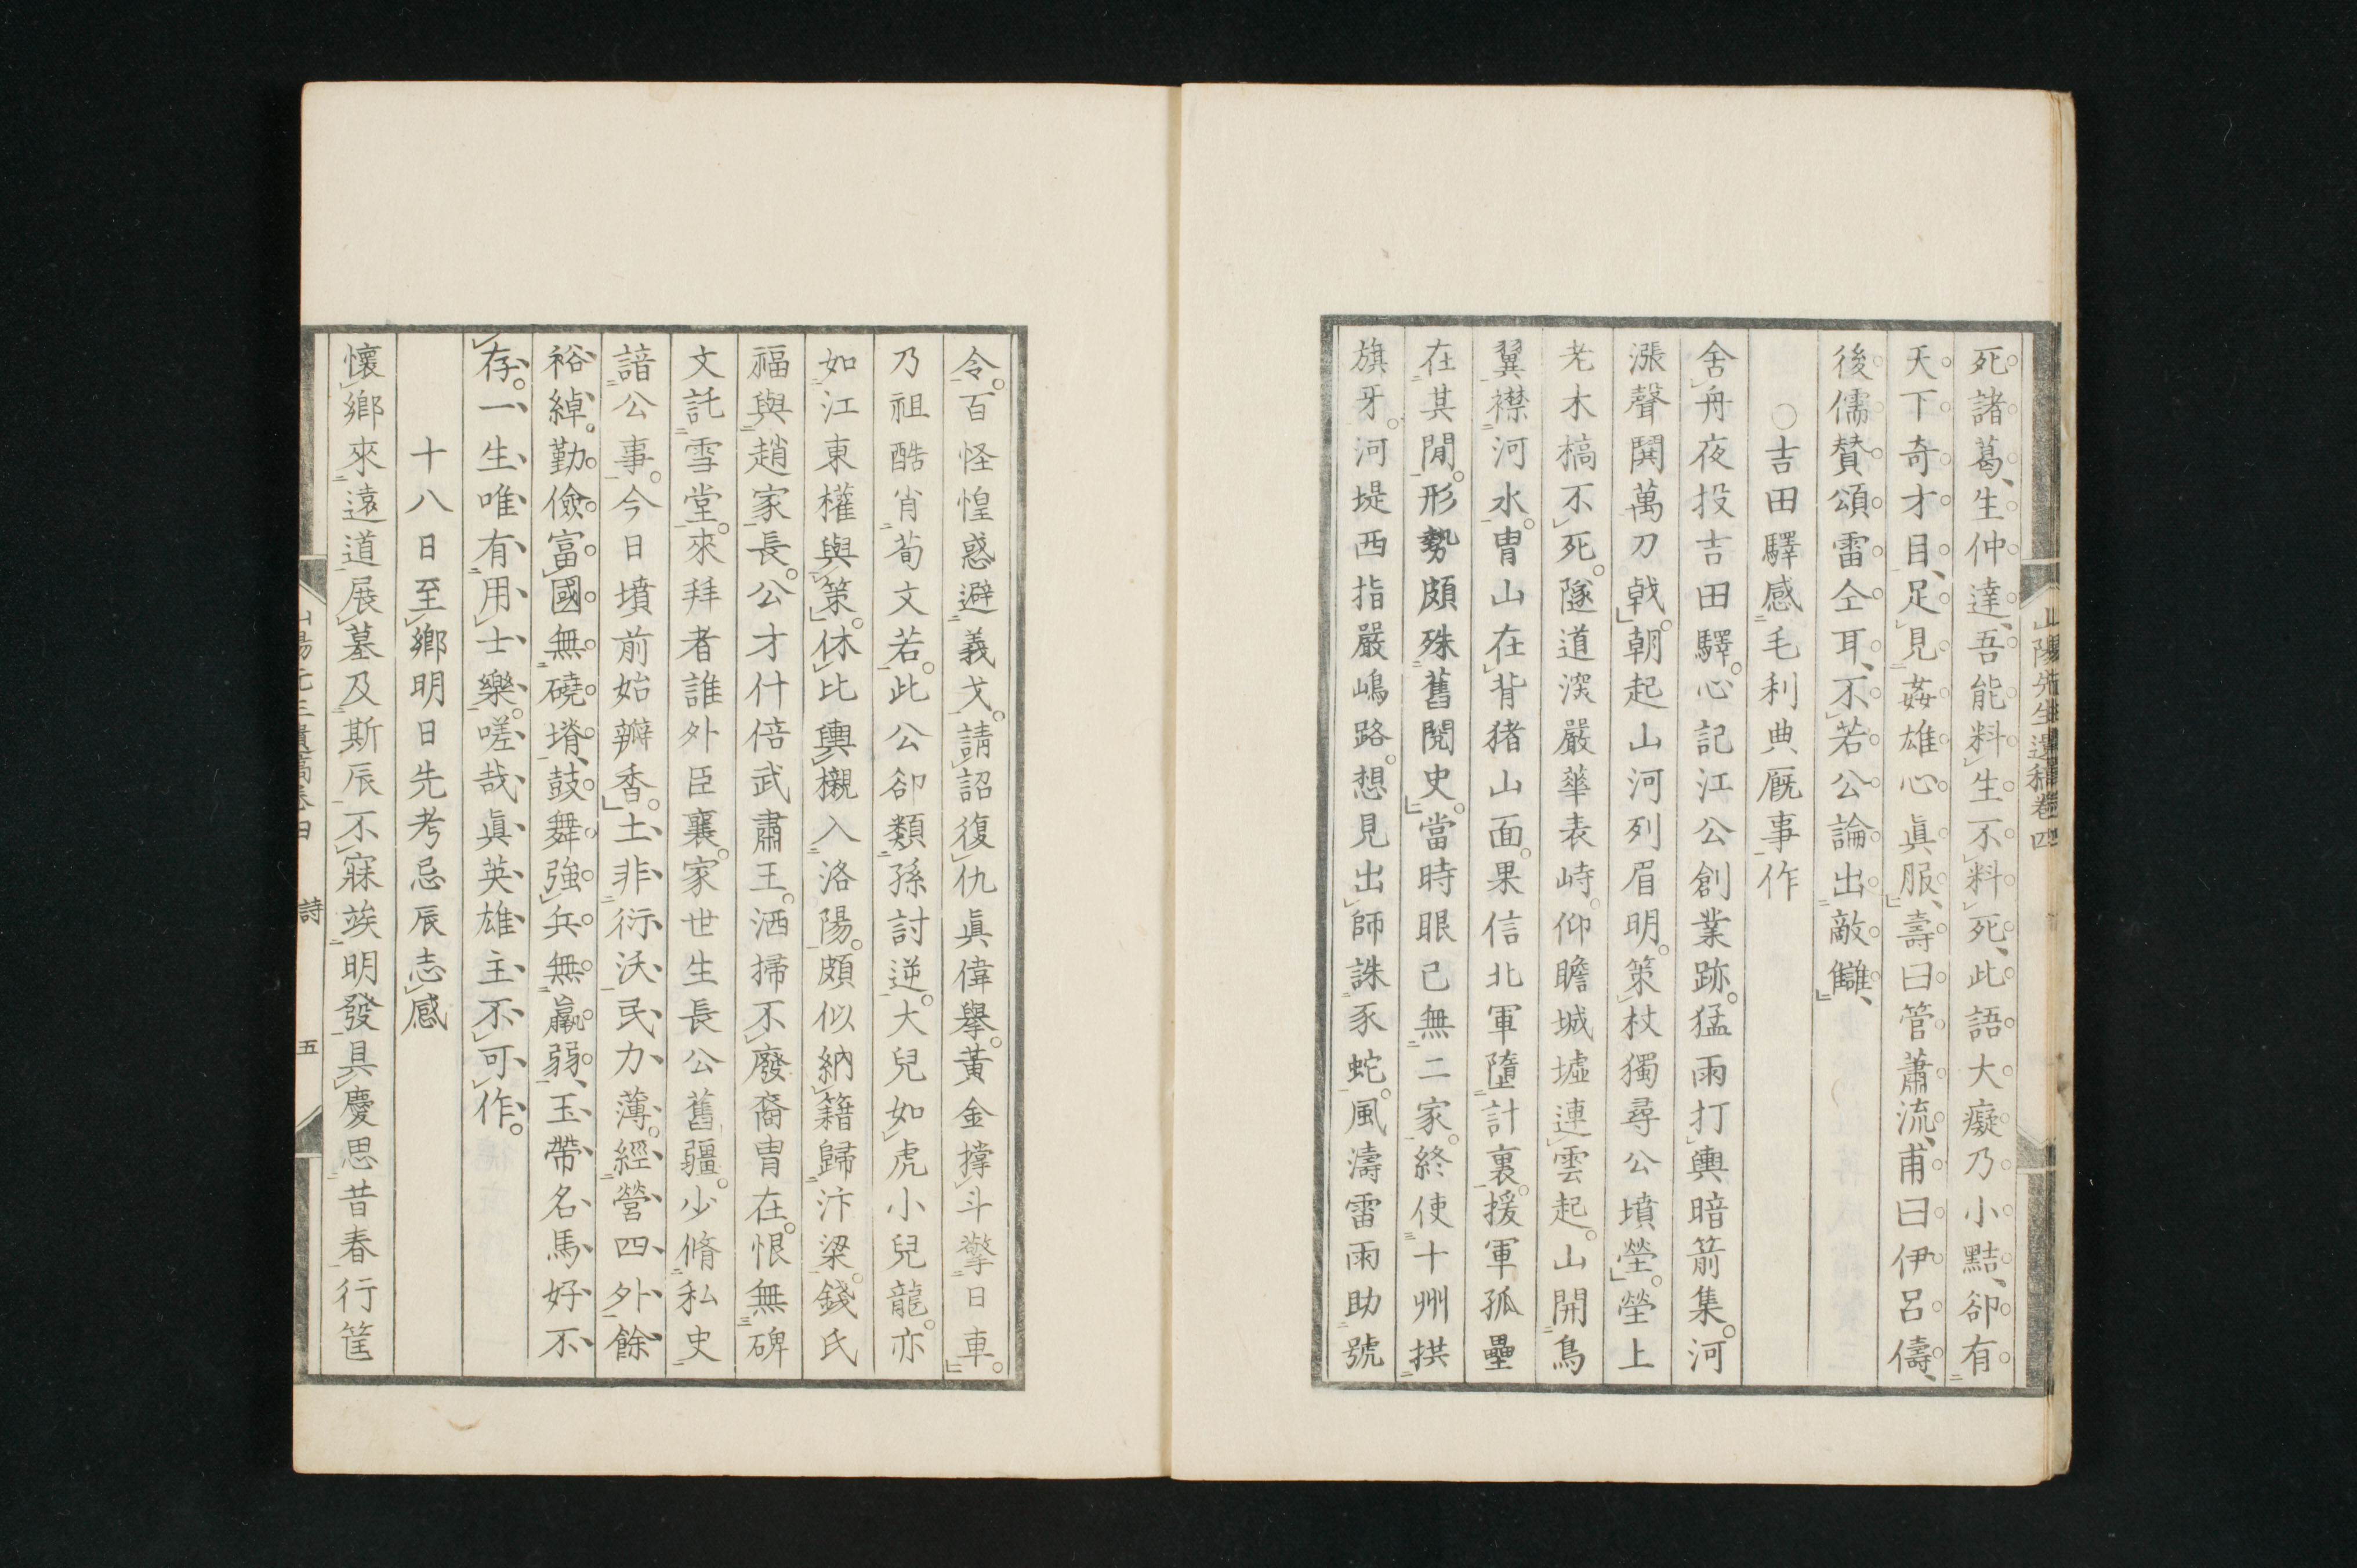 山陽先生遺稿卷四
死諸葛、生仲達、吾能料生不料死、此語大癡乃小黠、卻有
天下奇才目、足見姦雄心眞服、壽曰管蕭流、甫曰伊呂儔、
後儒贊頌雷仝耳、不若公論出敵讎、
○吉田驛感毛利典厩事作
舍舟夜投吉田驛。心記江公創業跡。猛雨打輿暗箭集。河
漲聲鬨萬刀戟。朝起山河列眉明。策杖獨尋公墳塋。塋上
老木槁不死。隧道深嚴華表峙。仰瞻城墟連雲起。山開鳥
翼襟河水。胄山在背猪山面。果信北軍墮計裏。援軍孤壘
在其間。形勢頗殊舊閱史。當時眼已無二家。終使十州拱
旗牙。河堤西指嚴嶋路。想見出師誅豕蛇。風濤雷雨助號
令。百怪惶惑避義戈。請詔復仇眞偉擧。黃金撐斗擎日車。
乃祖酷肖荀文若。此公卻類孫討逆。大兒如虎小兒龍。亦
如江東權與策。休比輿櫬入洛陽。頗似納籍歸汴梁。錢氏
福與趙家長。公才什倍武肅王。洒掃不廢裔胄在。恨無碑
文託雪堂。來拜者誰外臣襄。家世生長公舊疆。少脩私史
諳公事。今日墳前始瓣香。土非衍沃民力薄。經營四外餘
裕綽。勤儉富國無磽瘠、鼓舞強兵無羸弱、玉帶名馬好不
存。一生唯有用士樂。嗟哉眞英雄主不可作。
十八日至鄉明日先考忌辰志感
懷鄉來遠道展墓及斯辰不寐竢明發具慶思昔春行筐
詩
五